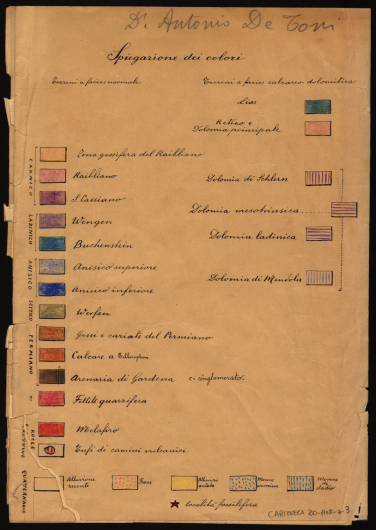 Dr Antonio De Toni
Spiegazione dei colori
Terreni a facies normale
Terreni a facies calcareo dolomitica
Lias
Retico e
Dolomia principale
Zona gessifera del Raibliano
CARNICO
Raibliano
Dolomia di Schlern
S. Cassiano
Dolomia mesotriasica
LADINICO
Wengen
Dolomia ladinica
Buchenstein
ANISICO
Anisico superiore
Dolomia di Mendola
Anisico inferiore
Werfen
PERMIANO
Gessi e cariale del Permiano
Calcare a Bellerophon
Arenaria di Gardena e conglomerato
Fillite quarzifera
ROCCE
Melafiro
Tufi di camini vulcanici
QUATERNARIO
Alluvioni
recenti
Frane
Alluvioni
antiche
Morene
Morene
★ località fossilifera
CARTOTECA 20-